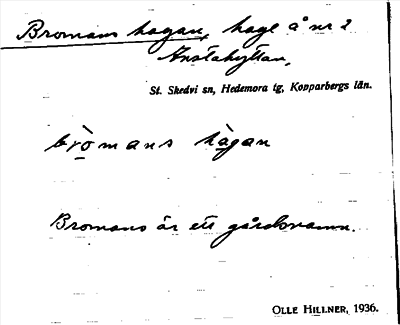 Bromans hagan, hage å nr 2
Anstahyttan,
St. Skedvi sn, Hedemora tg, Kopparbergs län.
bròmans hàgan
Bromans är ett gårdsnamn.
OLLE HILLNER, 1936.